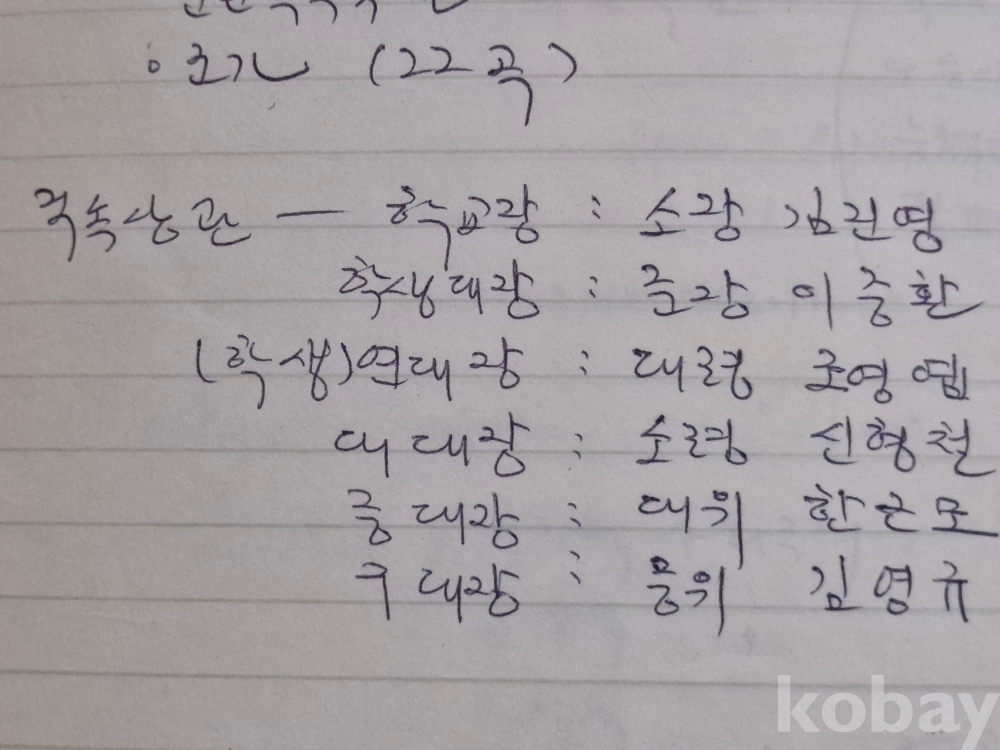 · 조간 (22곡)
직속상관 — 학교장 : 소장 김진영
학생대장 : 준장 이중환
(학생)연대장 : 대령 조영엽
대대장 : 소령 신형철
중대장 : 대위 한근모
구대장 : 중위 김영규
kobay